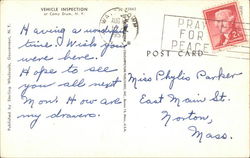 VEHICLE INSPECTION
at Camp Drum, N. Y.
PRAY
FOR
PEACE
2¢
POST CARD
Having a wonderful
time. Wish you
were here.
Hope to see
you all next
Mon. How are
my drawers.
Miss Phylis Parker
East Main St.
Norton,
Mass.
Published for Sterling Wholesale, Gouverneur, N. Y.